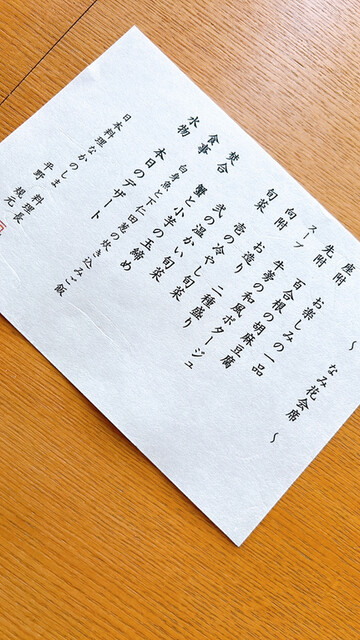 ～ なみ花会席 ～
座附 お楽しみの一品
先附 百合根の胡麻豆腐
スープ 牛蒡の和風ポタージュ
向附 お造り 二種盛り
旬菜 壱の冷やし旬菜
弐の温かい旬菜
焚合 蟹と小芋の玉締め
食事 白身魚と下仁田葱の炊き込みご飯
水物 本日のデザート
日本料理なかのしま 料理長
平野 規元